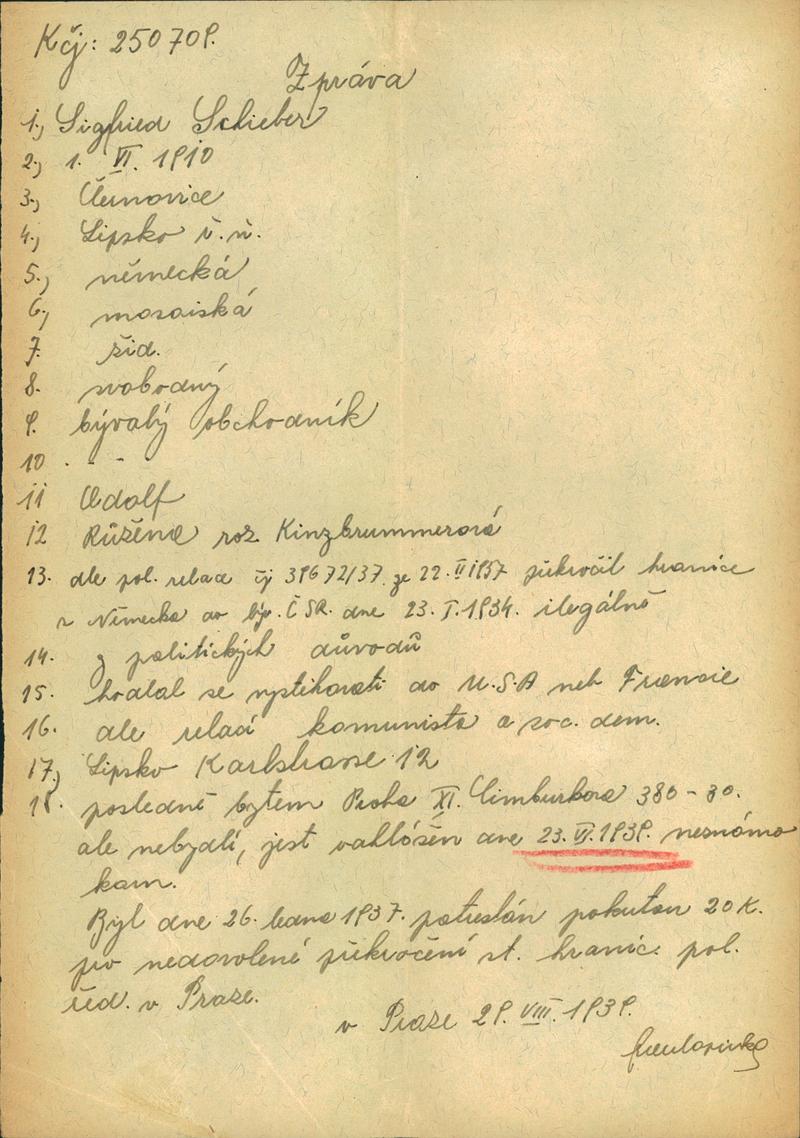 K čj: 250709.
Zpráva
1., Sigfried Schieber
2., 1. VI. 1910
3., Černovice
4., Lipsko ř. n.
5., německá
6., mosaiská
7. žid.
8. svobodný
9. bývalý obchodník
10 . - -
11 Adolf
12 Růžena roz. Kinzbrummerová
13. dle pol. relace čj 39672/37 ze 22. II 1937 překročil hranice
z Německa do býv. ČSR. dne 23. I. 1934. ilegálně
14. z politických důvodů
15. hodlal se vystěhovati do U.S.A neb Francie
16. dle relací komunista a soc. dem.
17., Lipsko Karlstrasse 12
18. posledně bytem Praha XI. Cimburkova 380 - 30.
ale nebydlí, jest odhlášen dne 23. VI. 1939. neznámo
kam.
Byl dne 26. ledna 1937. potrestán pokutou 20 K.
pro nedovolené překročení st. hranic pol.
řed. v Praze.
v Praze 29. VIII. 1939.